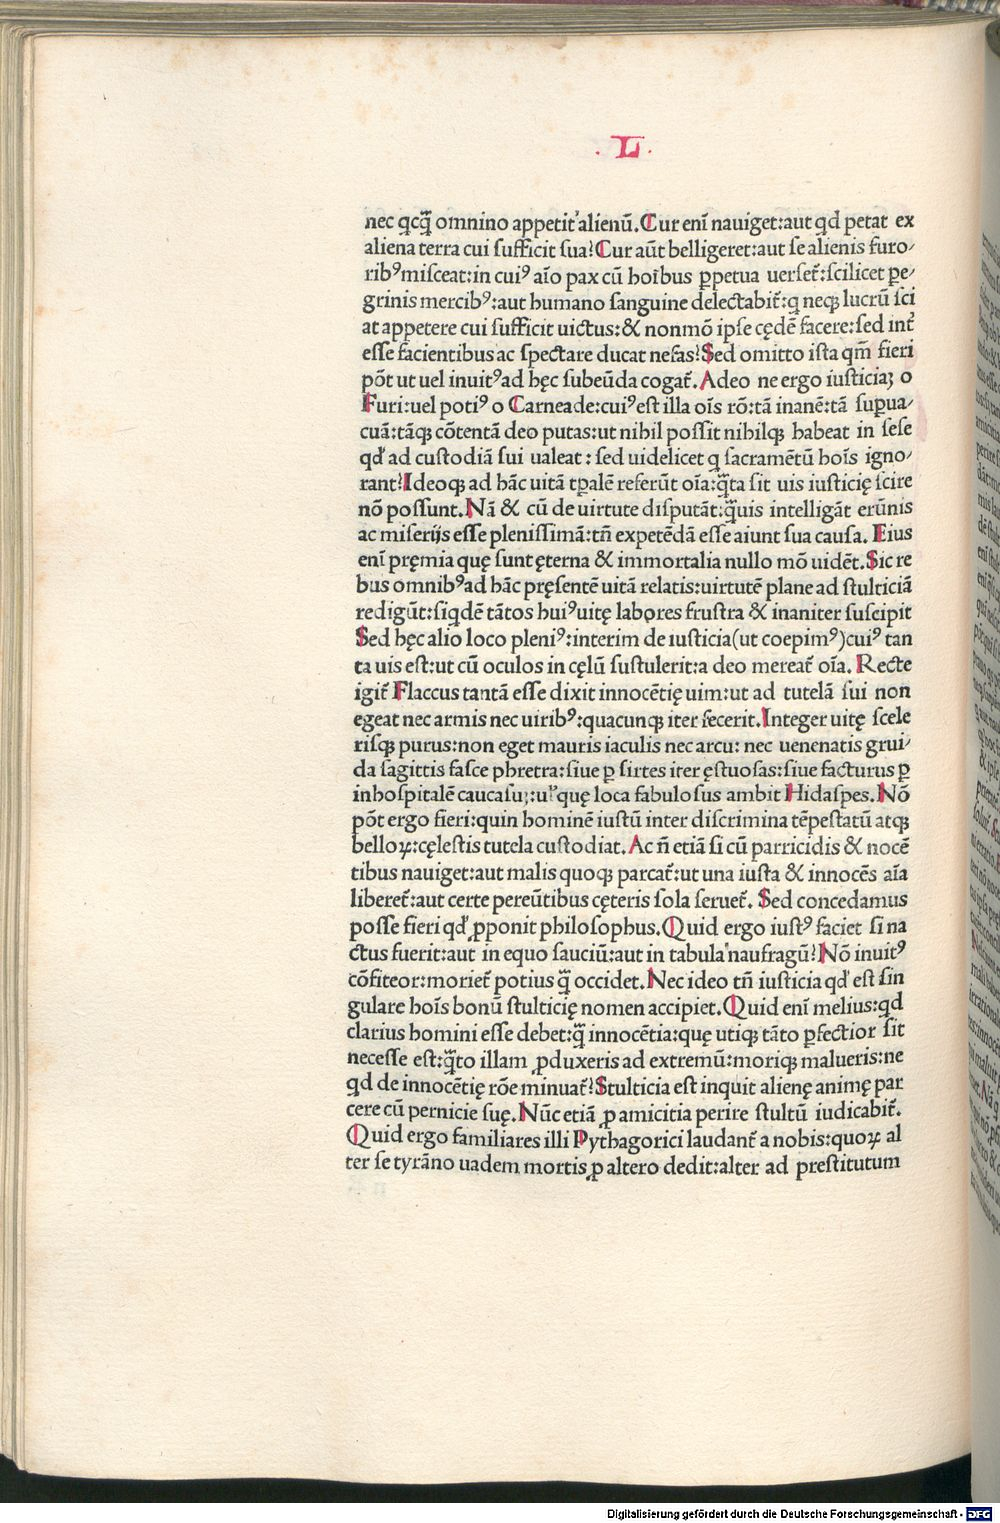 . L .
nec qcq̃ omnino appetit᷒ alienũ. Cur enĩ nauiget: aut qd petat ex
aliena terra cui sufficit sua? Cur aũt belligeret: aut se alienis furo⸗
ribꝰ misceat: in cuiꝰ aĩo pax cũ hoĩbus ꝑpetua uerset᷒: scilicet pe⸗
grinis mercibꝰ: aut humano sanguine delectabit᷒: q neqꝫ lucrũ sci
at appetere cui sufficit uictus: & nonmõ ipse cędẽ facere: sed int᷒
esse facientibus ac spectare ducat nefas? Sed omitto ista qm̃ fieri
põt ut uel inuitꝰ ad hęc subeũda cogat᷒. Adeo ne ergo iusticiaꝫ o
Furi: uel potiꝰ o Carneade: cuiꝰ est illa oĩs rõ: tã inanẽ: tã supua⸗
cuã: tãqꝫ cõtentã deo putas: ut nihil possit nihilqꝫ habeat in sese
qd᷒ ad custodiã sui ualeat: sed uidelicet q sacramẽtũ hoĩs igno⸗
rant? Ideoqꝫ ad hãc uitã tꝑalẽ referũt oĩa: q̃ta sit uis iusticię scire
nõ possunt. Nã & cũ de uirtute disputãt: q̃uis intelligãt erũnis
ac miserijs esse plenissimã: tñ expetẽdã esse aiunt sua causa. Eius
enĩ pręmia quę sunt ęterna & immortalia nullo mõ uidẽt. Sic re
bus omnibꝰ ad hãc pręsentẽ uitã relatis: uirtutẽ plane ad stulticiã
redigũt: siqdẽ tãtos huiꝰ uitę labores frustra & inaniter suscipit
Sed hęc alio loco pleniꝰ: interim de iusticia (ut coepimꝰ) cuiꝰ tan
ta uis est: ut cũ oculos in cęlũ sustulerit: a deo mereat᷒ oĩa. Recte
igit᷒ Flaccus tantã esse dixit innocẽtię uim: ut ad tutelã sui non
egeat nec armis nec uiribꝰ: quacunqꝫ iter fecerit. Integer uitę scele
risqꝫ purus: non eget mauris iaculis nec arcu: nec uenenatis grui⸗
da sagittis fasce phretra: siue ꝑ sirtes iter ęstuosas: siue facturus ꝑ
inhospitalẽ caucasuꝫ: uꝉ quę loca fabulosus ambit Hidaspes. Nõ
põt ergo fieri: quin hominẽ iustũ inter discrimina tẽpestatũ atqꝫ
belloꝝ: cęlestis tutela custodiat. Ac ñ etiã si cũ parricidis & nocẽ
tibus nauiget: aut malis quoqꝫ parcat᷒: ut una iusta & innocẽs aĩa
liberet᷒: aut certe pereũtibus cęteris sola seruet᷒. Sed concedamus
posse fieri qd᷒ ꝓponit philosophus. Quid ergo iustꝰ faciet si na
ctus fuerit: aut in equo sauciũ: aut in tabula naufragũ? Nõ inuitꝰ
cõfiteor: moriet᷒ potius q̃ occidet. Nec ideo tñ iusticia qd᷒ est sin
gulare hoĩs bonũ stulticię nomen accipiet. Quid enĩ melius: qd
clarius homini esse debet: q̃ innocẽtia: quę utiqꝫ tãto ꝑfectior sit
necesse est: q̃to illam ꝓduxeris ad extremũ: moriqꝫ malueris: ne
qd de innocẽtię rõe minuat᷒? Stulticia est inquit alienę animę par
cere cũ pernicie suę. Nũc etiã ꝓ amicitia perire stultũ iudicabit᷒.
Quid ergo familiares illi Pythagorici laudant᷒ a nobis: quoꝝ al
ter se tyrãno uadem mortis ꝓ altero dedit: alter ad prestitutum
Digitalisierung gefördert durch die Deutsche Forschungsgemeinschaft - DFG